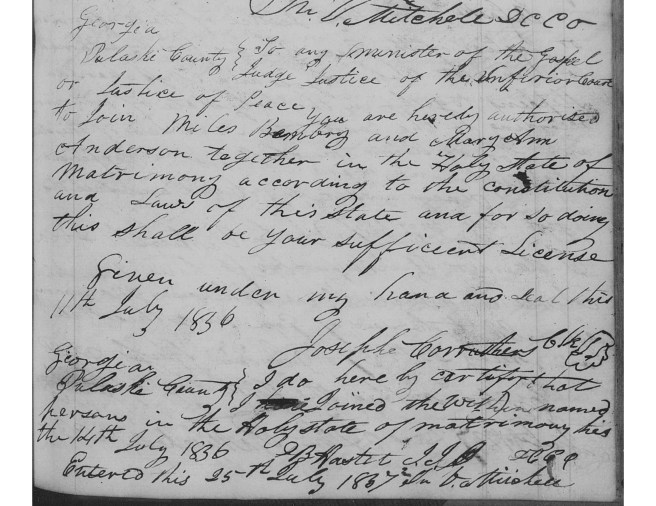 V. Mitchell D C C O
Georgia
Pulaski County } To any minister of the Gospel
Judge Justice of the Inferior Court
or Justice of Peace
to Join Miles Bembry and Mary Ann
You are hereby authorised
Anderson together in the Holy State of
Matrimony according to the constitution
and Laws of this State and for so doing
this shall be your sufficient License
Given under my hand and seal this
11th July 1836
Joseph Carruthers Clk
Georgia
Pulaski County } I do here by certify that
I Joined the within named
persons in the Holy state of matrimony this
the 14th July 1836
Entered this 25th July 1837 V. Mitchell